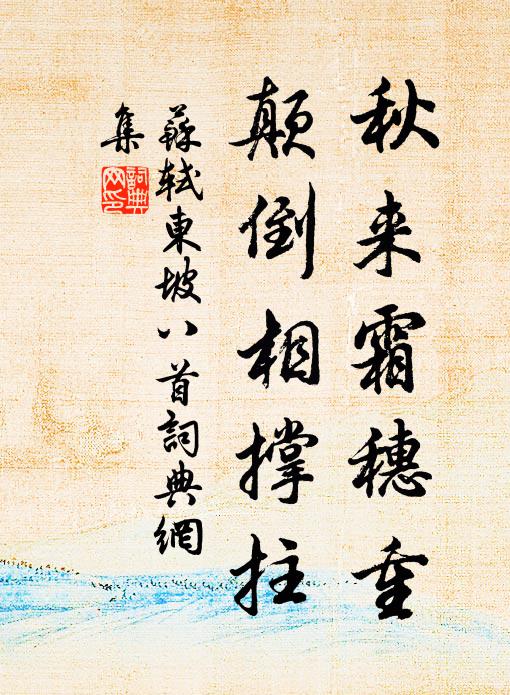 秋来霜穗重
颠倒相撑拄
蘇軾東坡八首詞典網
集
詞典
网印